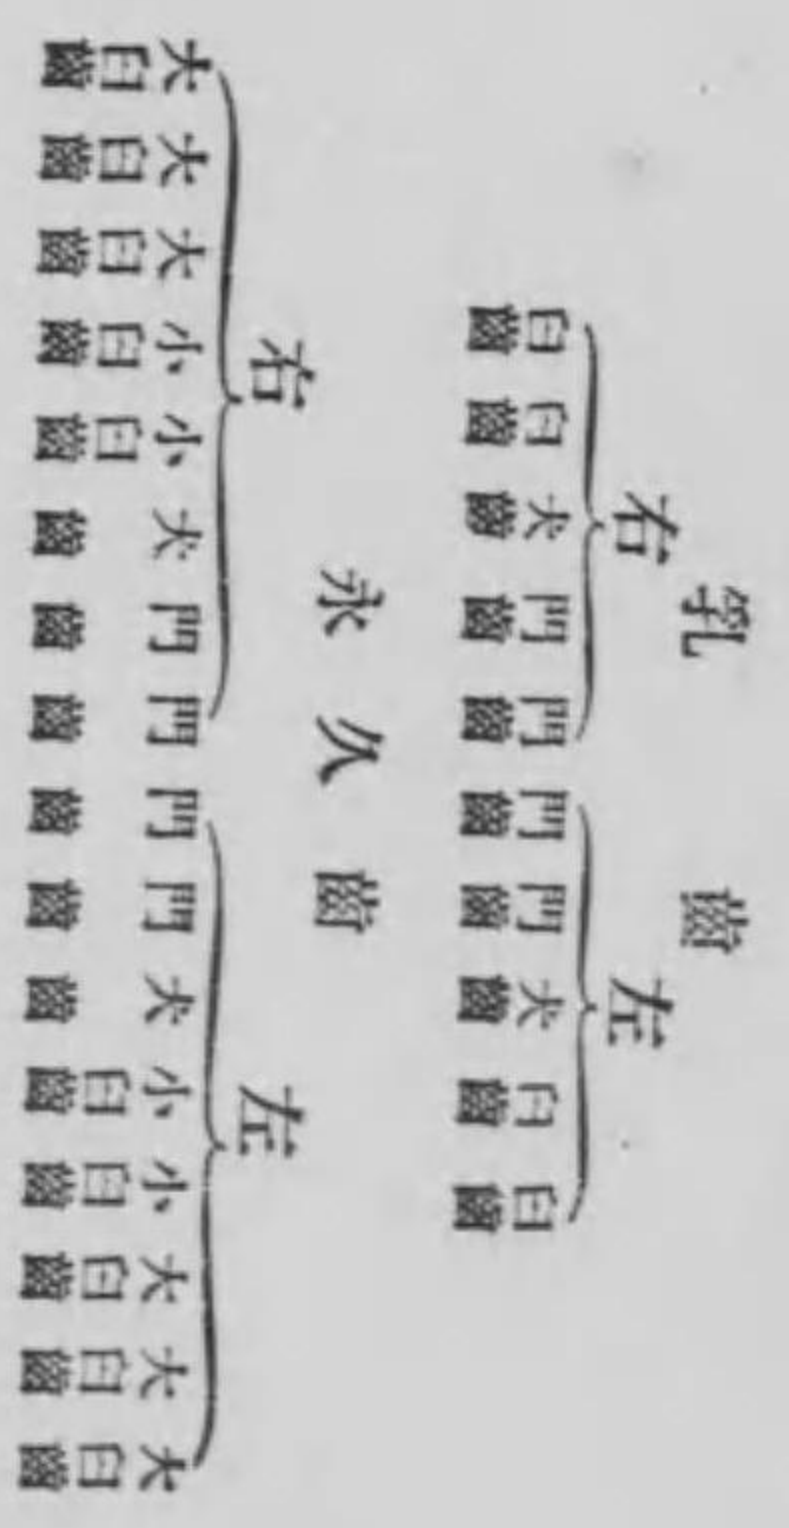 乳齒
右
臼齒
臼齒
犬齒
門齒
門齒
左
門齒
門齒
犬齒
臼齒
臼齒
永久齒
右
大臼齒
大臼齒
大臼齒
小臼齒
小臼齒
犬齒
門齒
門齒
左
門齒
門齒
犬齒
小臼齒
小臼齒
大臼齒
大臼齒
大臼齒